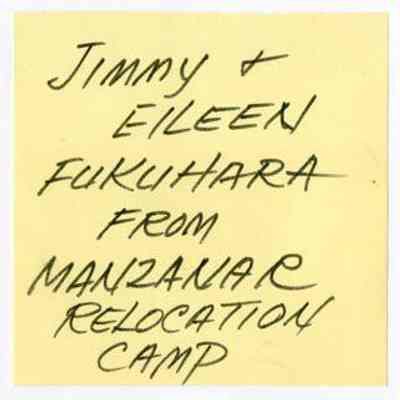 Jimmy +
EILEEN
FUKUHARA
FROM
MANZANAR
RELOCATION
CAMP